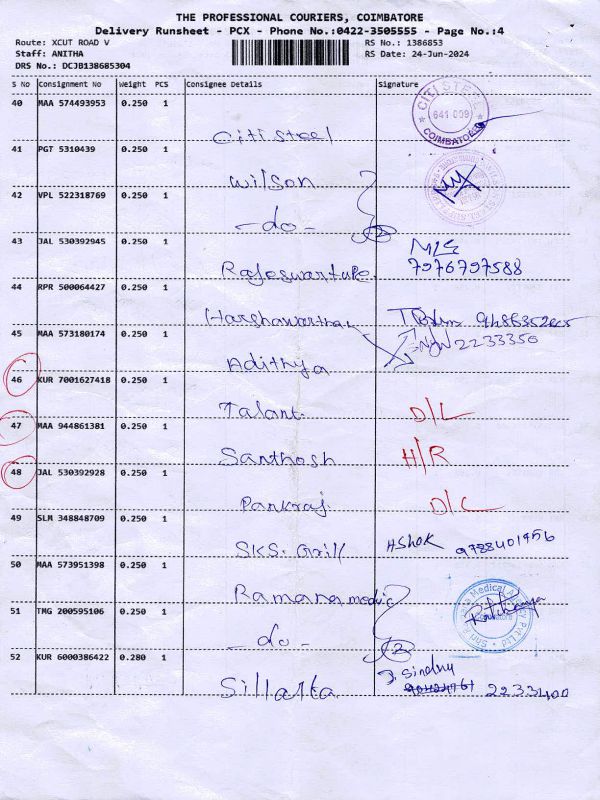 THE PROFESSIONAL COURIERS, COIMBATORE
Delivery Runsheet - PCX - Phone No.:0422-3505555 - Page No.:4
Route: XCUT ROAD V RS No.: 1386853
Staff: ANITHA RS Date: 24-Jun-2024
DRS No.: DCJB138685304
S No Consignment No Weight PCS Consignee Details Signature
40 MAA 574493953 0.250 1
CITI STEEL 641 009 COIMBATORE
Citi Steel
41 PGT 5310439 0.250 1
Wilson
42 VPL 522318769 0.250 1
-do- 2
43 JAL 530392945 0.250 1
Rajeswari tube 7976797588
44 RPR 500064427 0.250 1
Harshawardhan
45 MAA 573180174 0.250 1 2233350
Adithya
46 KUR 7001627418 0.250 1
Talant D/L
47 MAA 944861381 0.250 1
Santhosh H/R
48 JAL 530392928 0.250 1
Pankraj D/C
49 SLM 348848709 0.250 1
SKS. Grill Ashok 9788401956
50 MAA 573951398 0.250 1
Ramana medic
51 TMG 200595106 0.250 1
-do- 2
52 KUR 6000386422 0.280 1
Sillarta 2233400